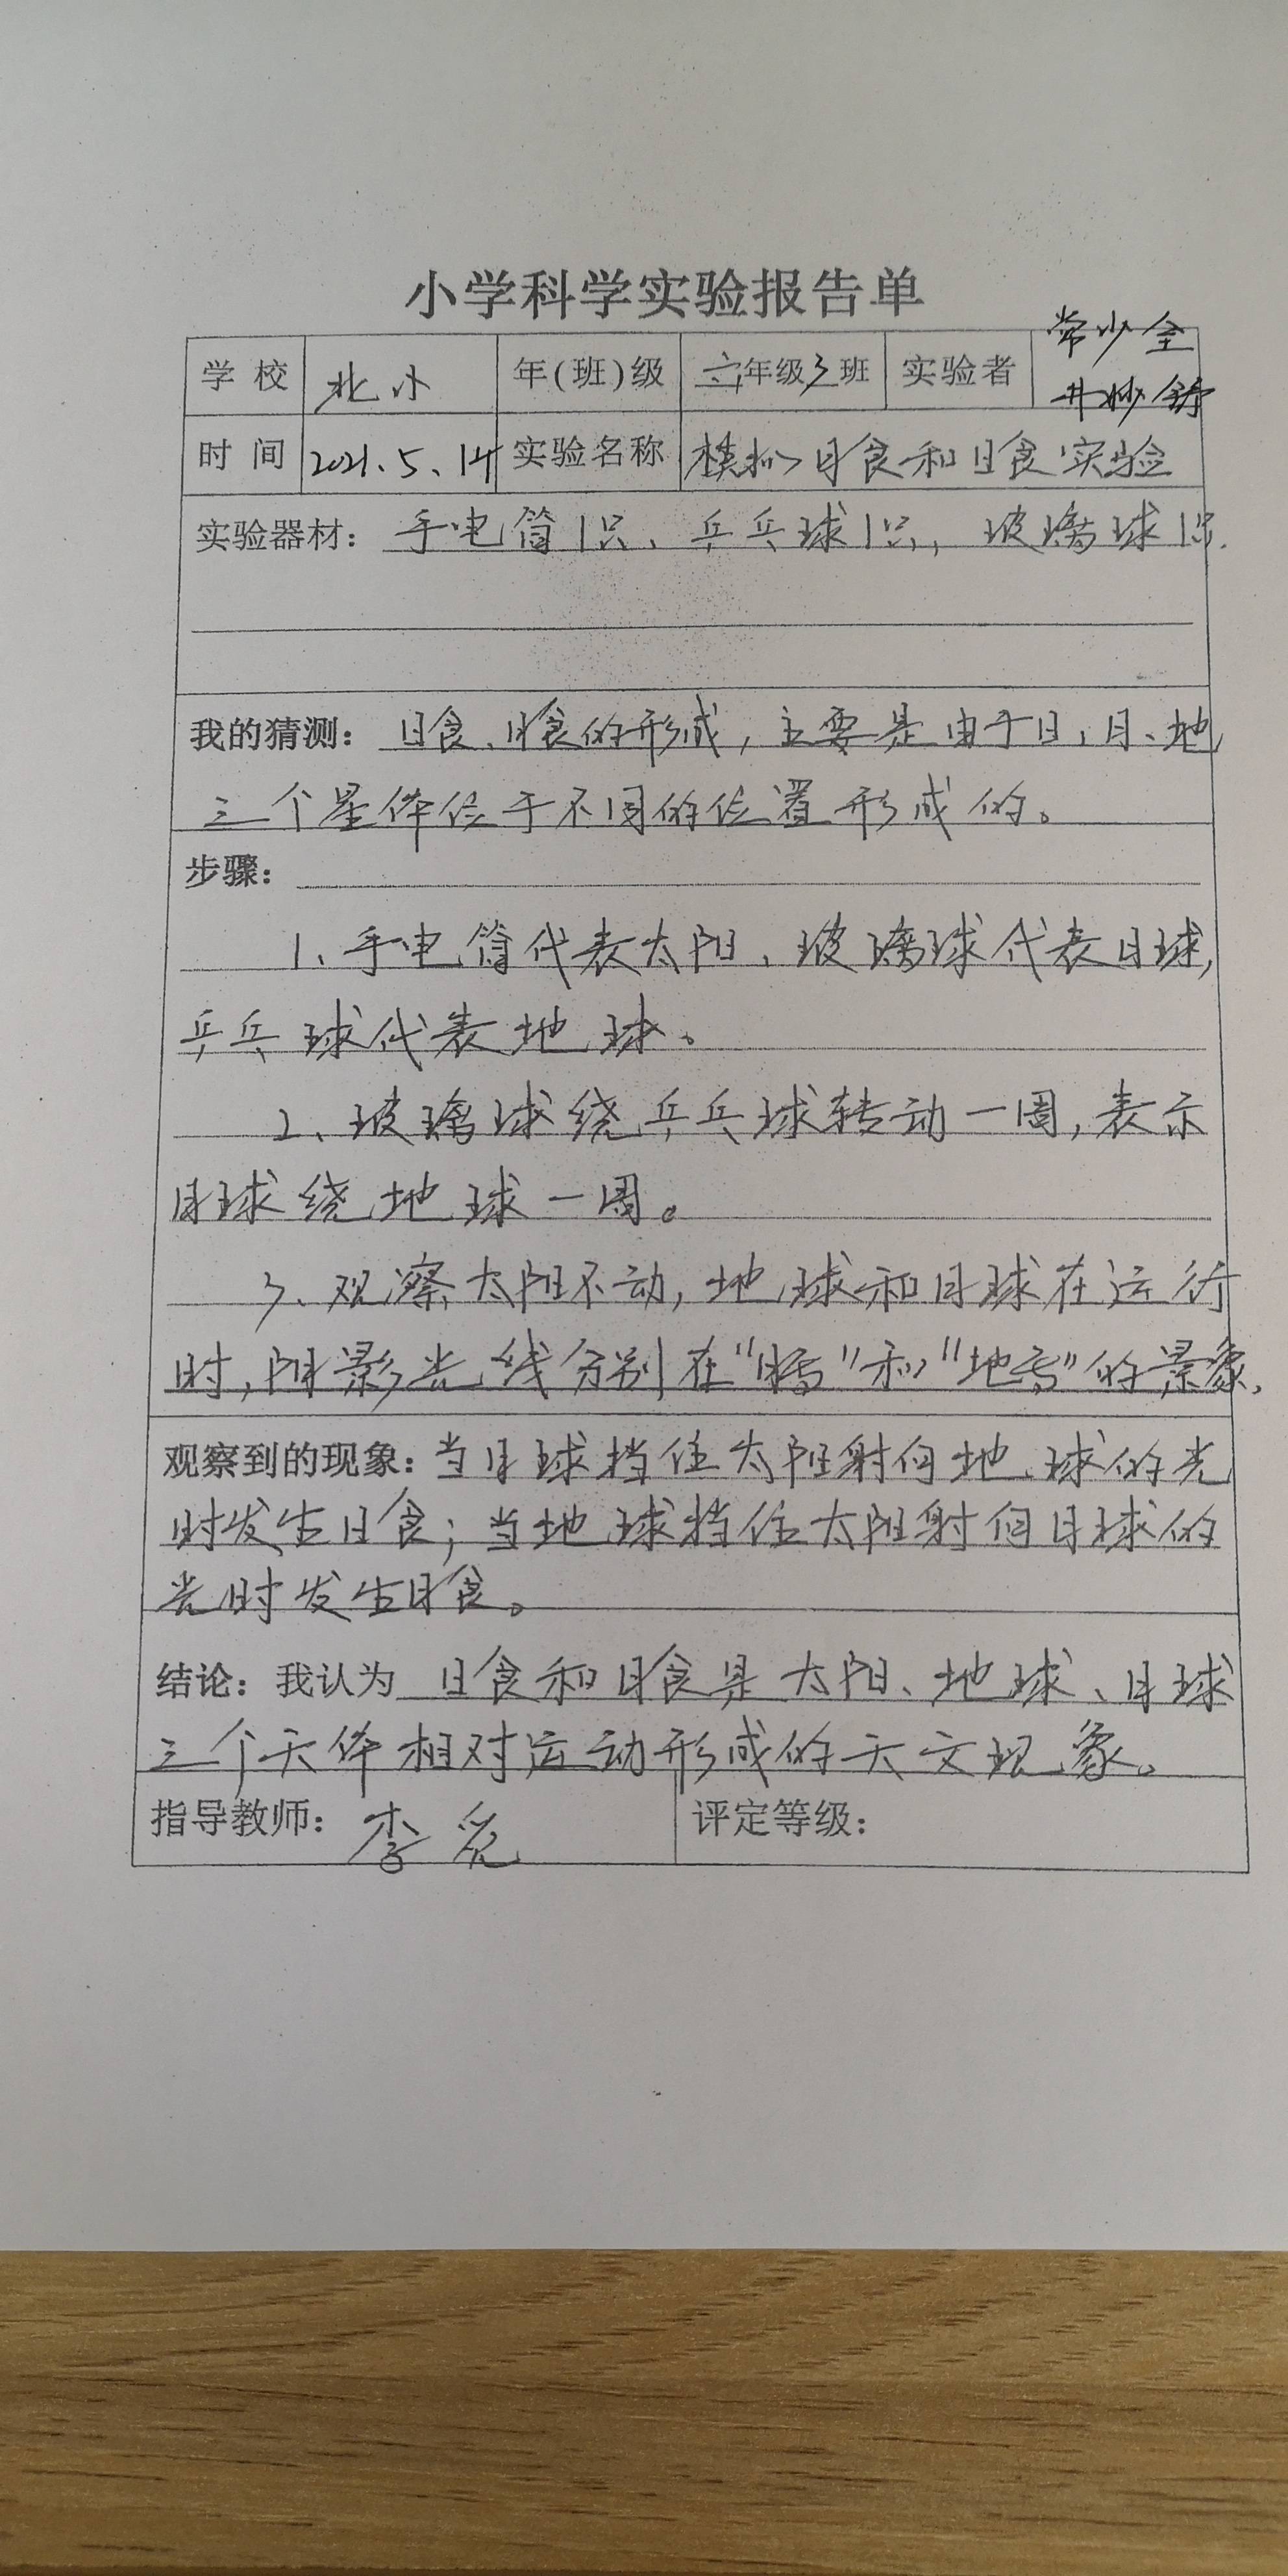 小学科学实验报告单
学校 北小 年(班)级 六年级3班 实验者 常少全
井妙舒
时间 2021.5.14 实验名称 模拟日食和月食实验
实验器材: 手电筒1只、乒乓球1只,玻璃球1只.
我的猜测: 日食、月食的形成,主要是由于日、月、地
三个星体位于不同的位置形成的。
步骤:
1、手电筒代表太阳、玻璃球代表月球,
乒乓球代表地球。
2、玻璃球绕乒乓球转动一周,表示
月球绕地球一周。
3、观察太阳不动,地球和月球在运行
时,阴影光线分别在“”和“”的景象.
观察到的现象:当月球挡住太阳射向地球的光
时发生日食;当地球挡住太阳射向月球的
光时发生月食。
结论:我认为 日食和月食是太阳、地球、月球
三个天体相对运动形成的天文现象。
指导教师: 李 评定等级: